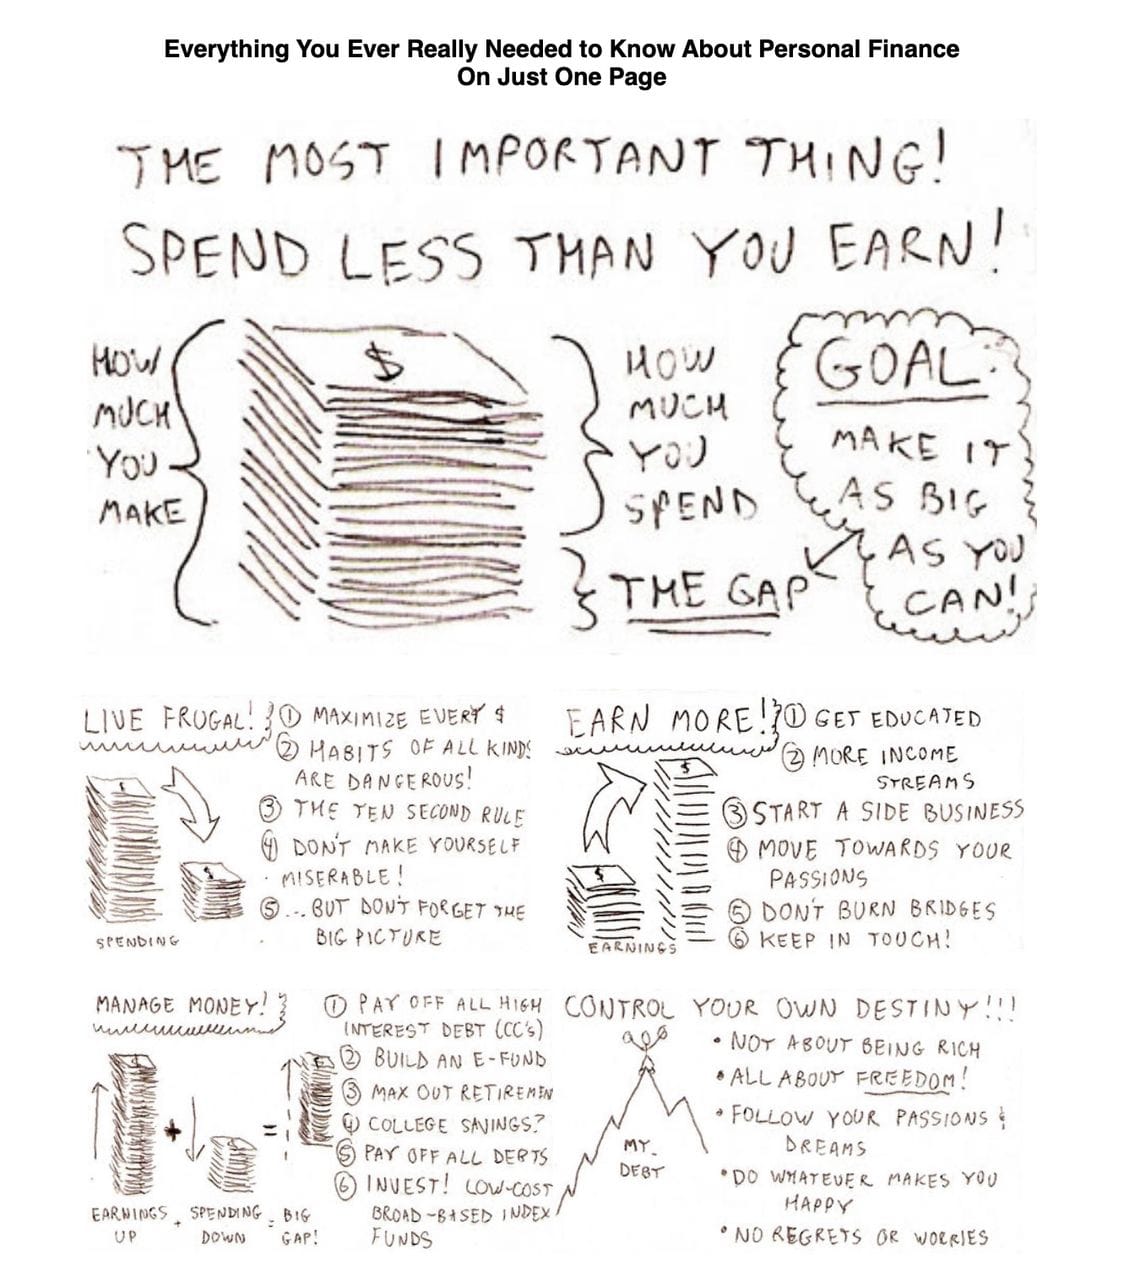 Everything You Ever Really Needed to Know About Personal Finance
On Just One Page
THE MOST IMPORTANT THING!
SPEND LESS THAN YOU EARN!
HOW
MUCH
YOU
MAKE
$
HOW
MUCH
YOU
SPEND
THE GAP
GOAL:
MAKE IT
AS BIG
AS YOU
CAN!
LIVE FRUGAL!
① MAXIMIZE EVERY $
② HABITS OF ALL KINDS
ARE DANGEROUS!
③ THE TEN SECOND RULE
④ DON'T MAKE YOURSELF
MISERABLE!
⑤ ... BUT DON'T FORGET THE
BIG PICTURE
$
SPENDING
EARN MORE!
① GET EDUCATED
② MORE INCOME
STREAMS
③ START A SIDE BUSINESS
④ MOVE TOWARDS YOUR
PASSIONS
⑤ DON'T BURN BRIDGES
⑥ KEEP IN TOUCH!
$
$
EARNINGS
MANAGE MONEY!
① PAY OFF ALL HIGH
INTEREST DEBT (CC'S)
② BUILD AN E-FUND
③ MAX OUT RETIREMEN
④ COLLEGE SAVINGS?
⑤ PAY OFF ALL DEBTS
⑥ INVEST! LOW-COST
BROAD-BASED INDEX
FUNDS
+ =
EARNINGS + SPENDING = BIG
UP DOWN GAP!
CONTROL YOUR OWN DESTINY!!!
• NOT ABOUT BEING RICH
• ALL ABOUT FREEDOM!
• FOLLOW YOUR PASSIONS &
DREAMS
• DO WHATEVER MAKES YOU
HAPPY
• NO REGRETS OR WORRIES
MY
DEBT